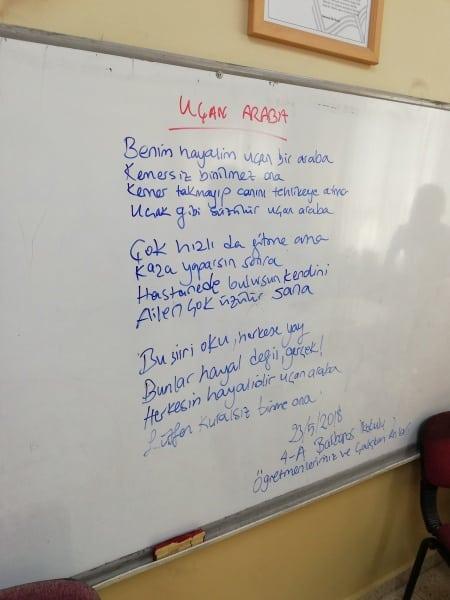 UÇAN ARABA
Benim hayalim uçan bir araba
Kemersiz binilmez ona
Kemer takmayıp canını tehlikeye atma
Uçak gibi süzülür uçan araba
Çok hızlı da gitme ama
Kaza yaparsın sonra
Hastanede bulursun kendini
Ailen çok üzülür sana
Bu şiiri oku, herkese yay
Bunlar hayal değil, gerçek!
Herkesin hayalidir uçan araba
Lütfen kuralsız binme ona
23/5/2018
4-A Barbaros
Öğretmenlerimiz ve